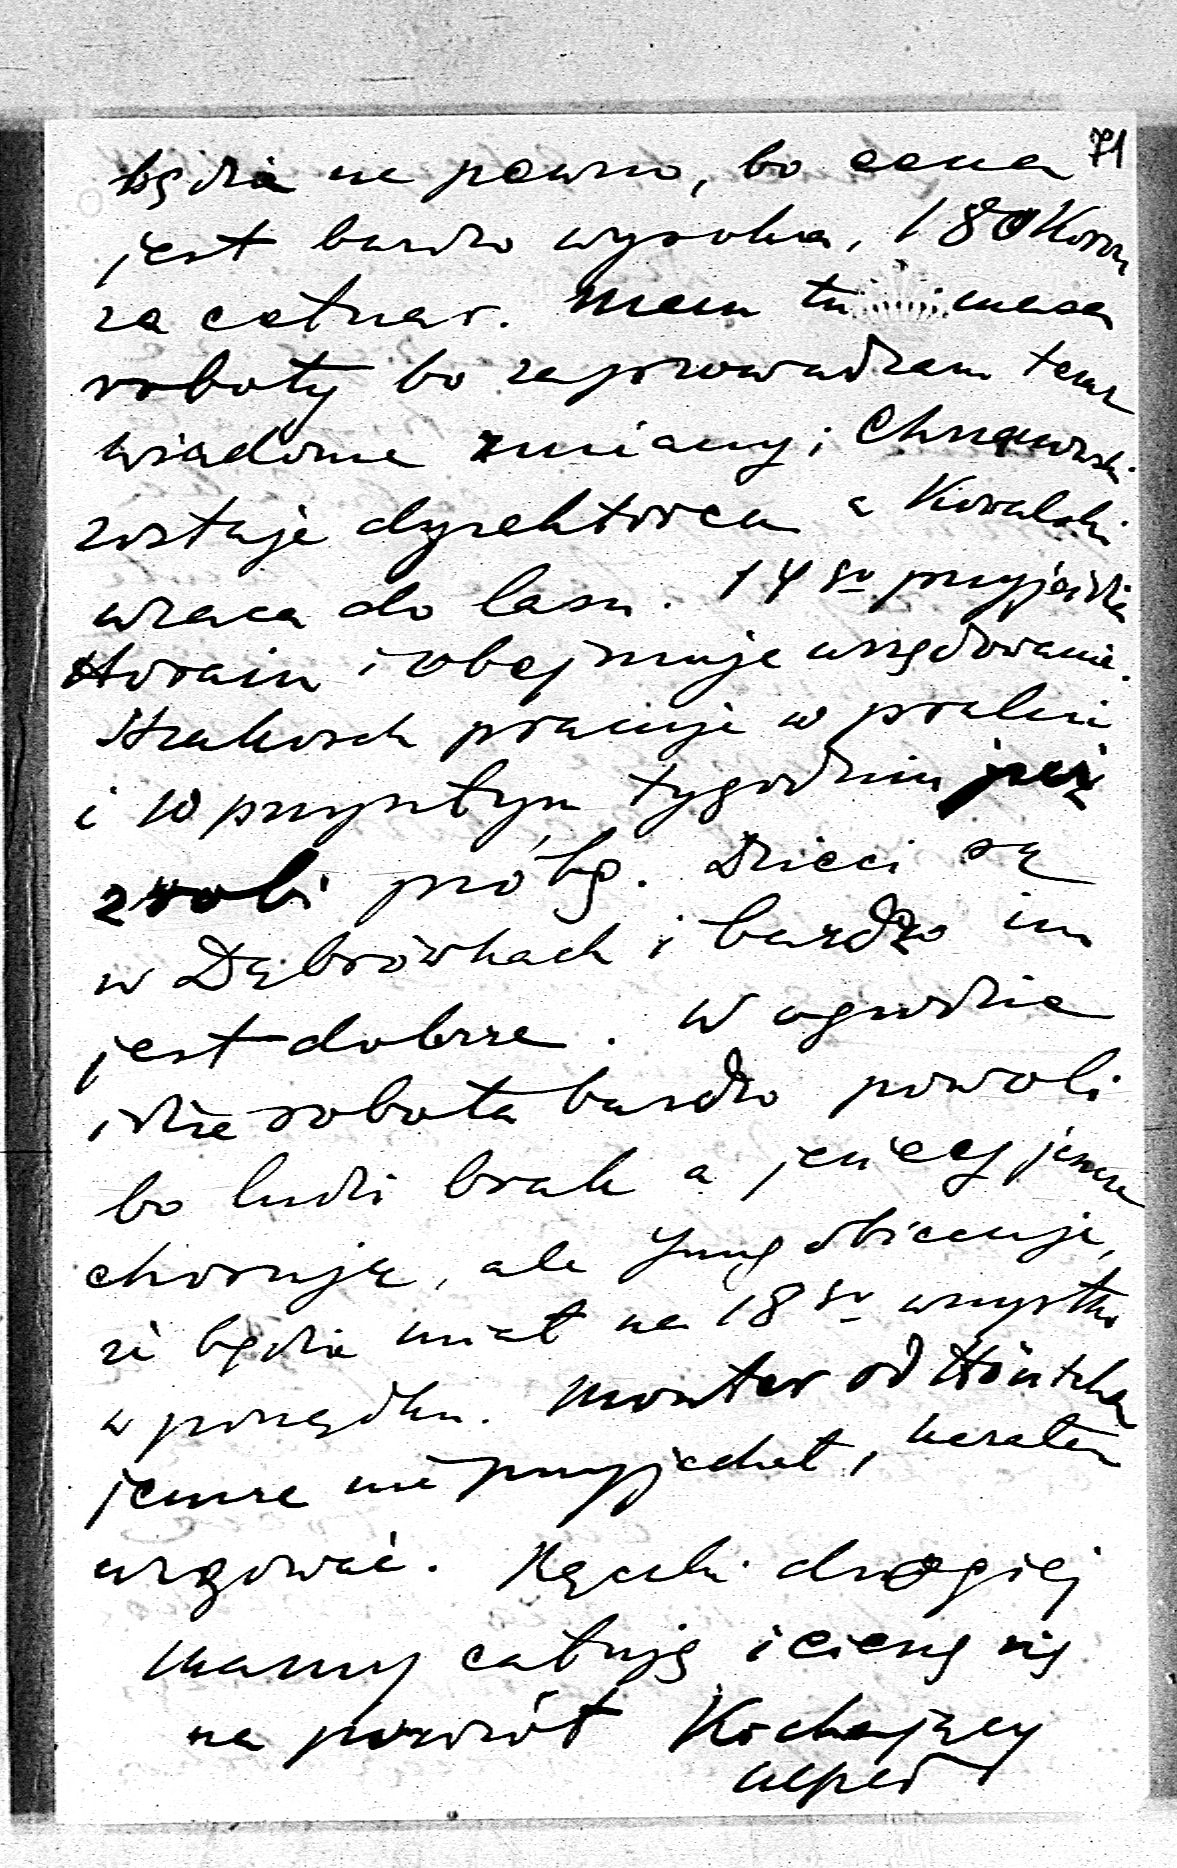 71
będzie na pewno, bo cena
jest bardzo wysoka, 180 Koron
za cetnar. Mam tu masę
roboty bo zaprowadzam teraz
wiadome zmiany;
zostaje dyrektorem a Kowalski
wraca do lasu. 14 go przyjeżdża
Horain i obejmuje urzędowanie.
pracuje w pralni
i w przyszłym tygodniu już
zrobi próbę. Dzieci są
w Dąbrówkach i bardzo im
jest dobrze. W ogrodzie
idzie robota bardzo powoli
bo ludzi brak a jeńcy jeszcze
chorują, ale Jung obiecuje,
że będzie miał na 18 go wszystko
w porządku. Monter od
jeszcze nie przyjechał, kazałem
urgować. Rączki drogiej
Mamy całuję i cieszę się
na powrót Kochający
Alfred